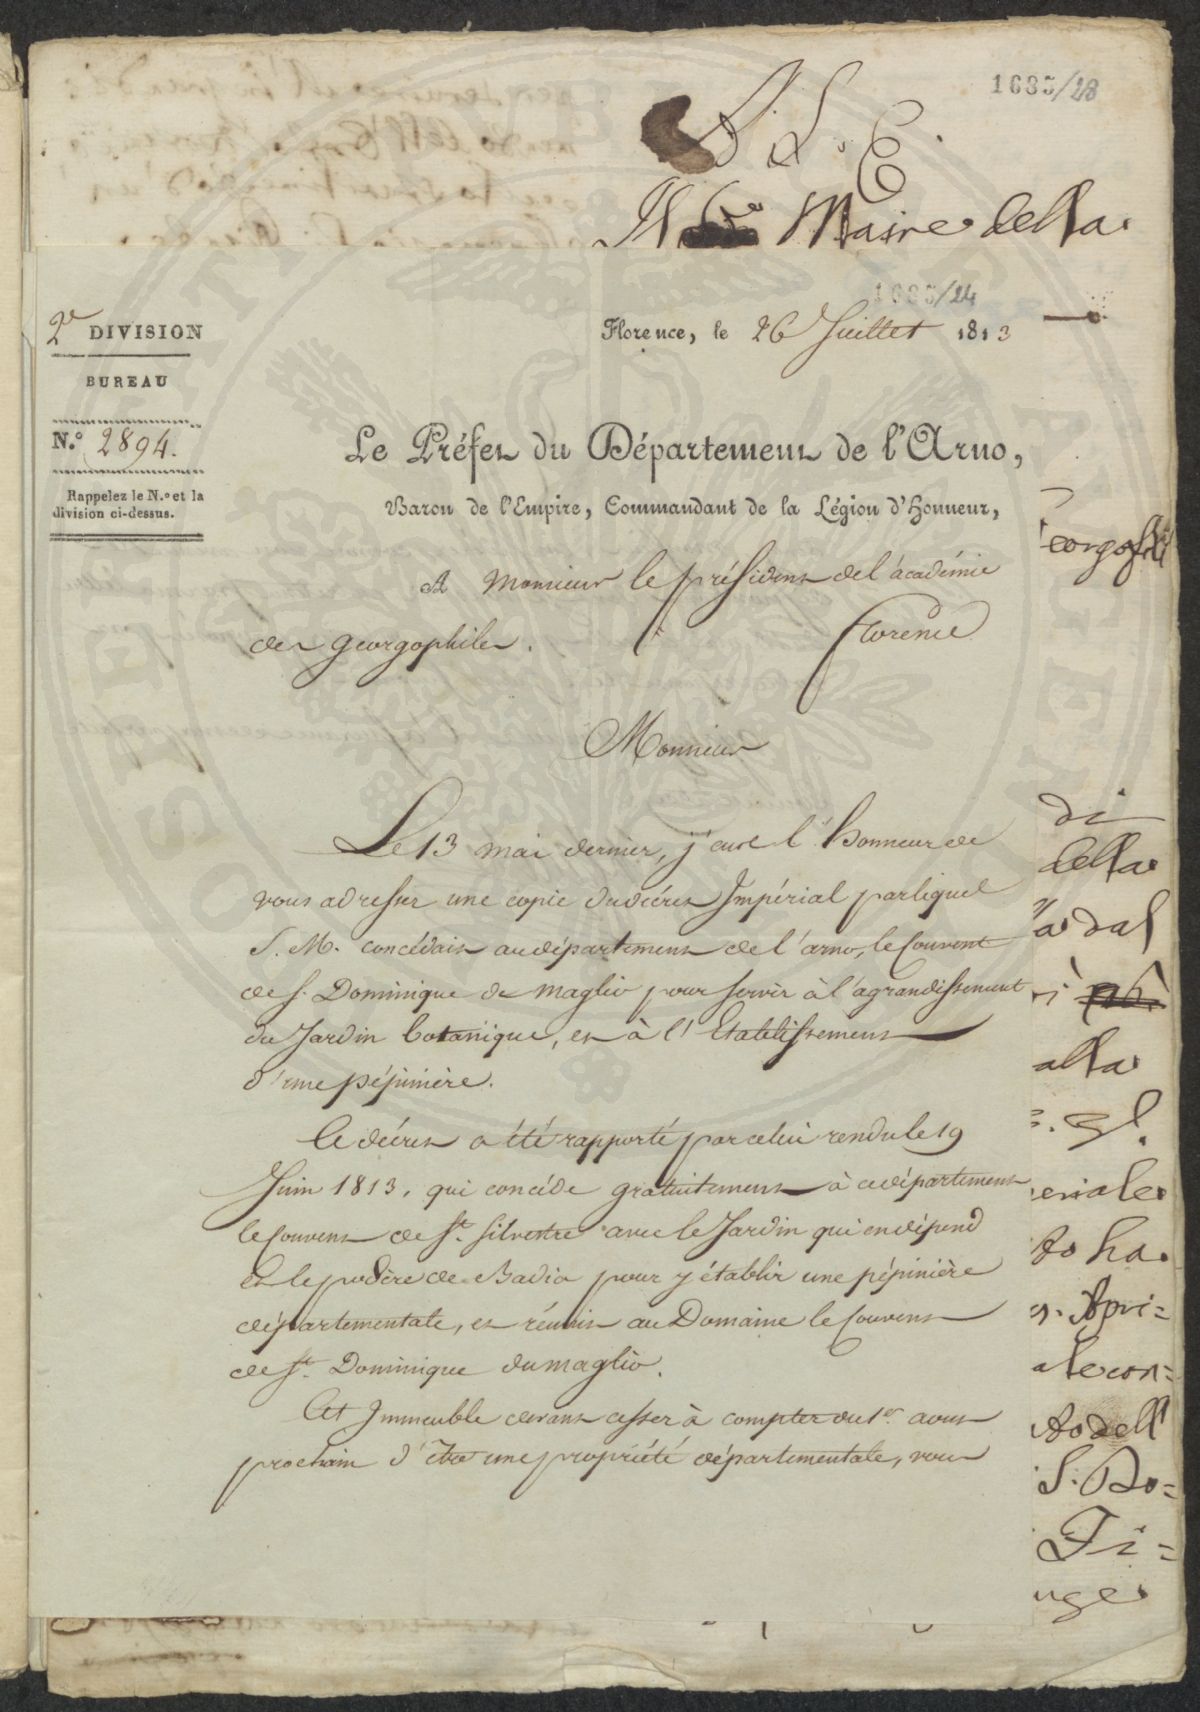 1685/28
A. L. C.
Il Maire della
1685/24
2e DIVISION
BUREAU
N.o 2894.
Rappelez le N.o et la
division ci-dessus.
Florence, le 26 Juillet 1813
Le Préfet du Département de l'Arno,
Baron de l'Empire, Commandant de la Légion d'Honneur,
A Monsieur le président de l'académie
des georgophiles. Florence
Monsieur
Le 13 mai dernier, j'eus l'honneur de
vous adresser une copie du décret Impérial par liquel
S. M. concédait au département de l'arno, le Couvent
de S. Dominique de Maglio pour servir à l'agrandissement
du Jardin botanique, et à l'Etablissement
d'une pépinière.
Ce décret a été rapporté par celui rendu le 19
Juin 1813. qui concède gratuitement à ce département
le Couvent de St. Silvestre avec le Jardin qui en dépend
et le podère de Badia pour y établir une pépinière
départementale, et réunit au Domaine le Couvent
de St. Dominique du maglio.
Cet Immeuble devant cesser à compter du 1er aout
prochain d'être une propriété départementale, vous
eorgofili
di
della
dal
alla
eriale
to ha
Apri=
ale con=
to dell'
S. Do=
Fi=
uge